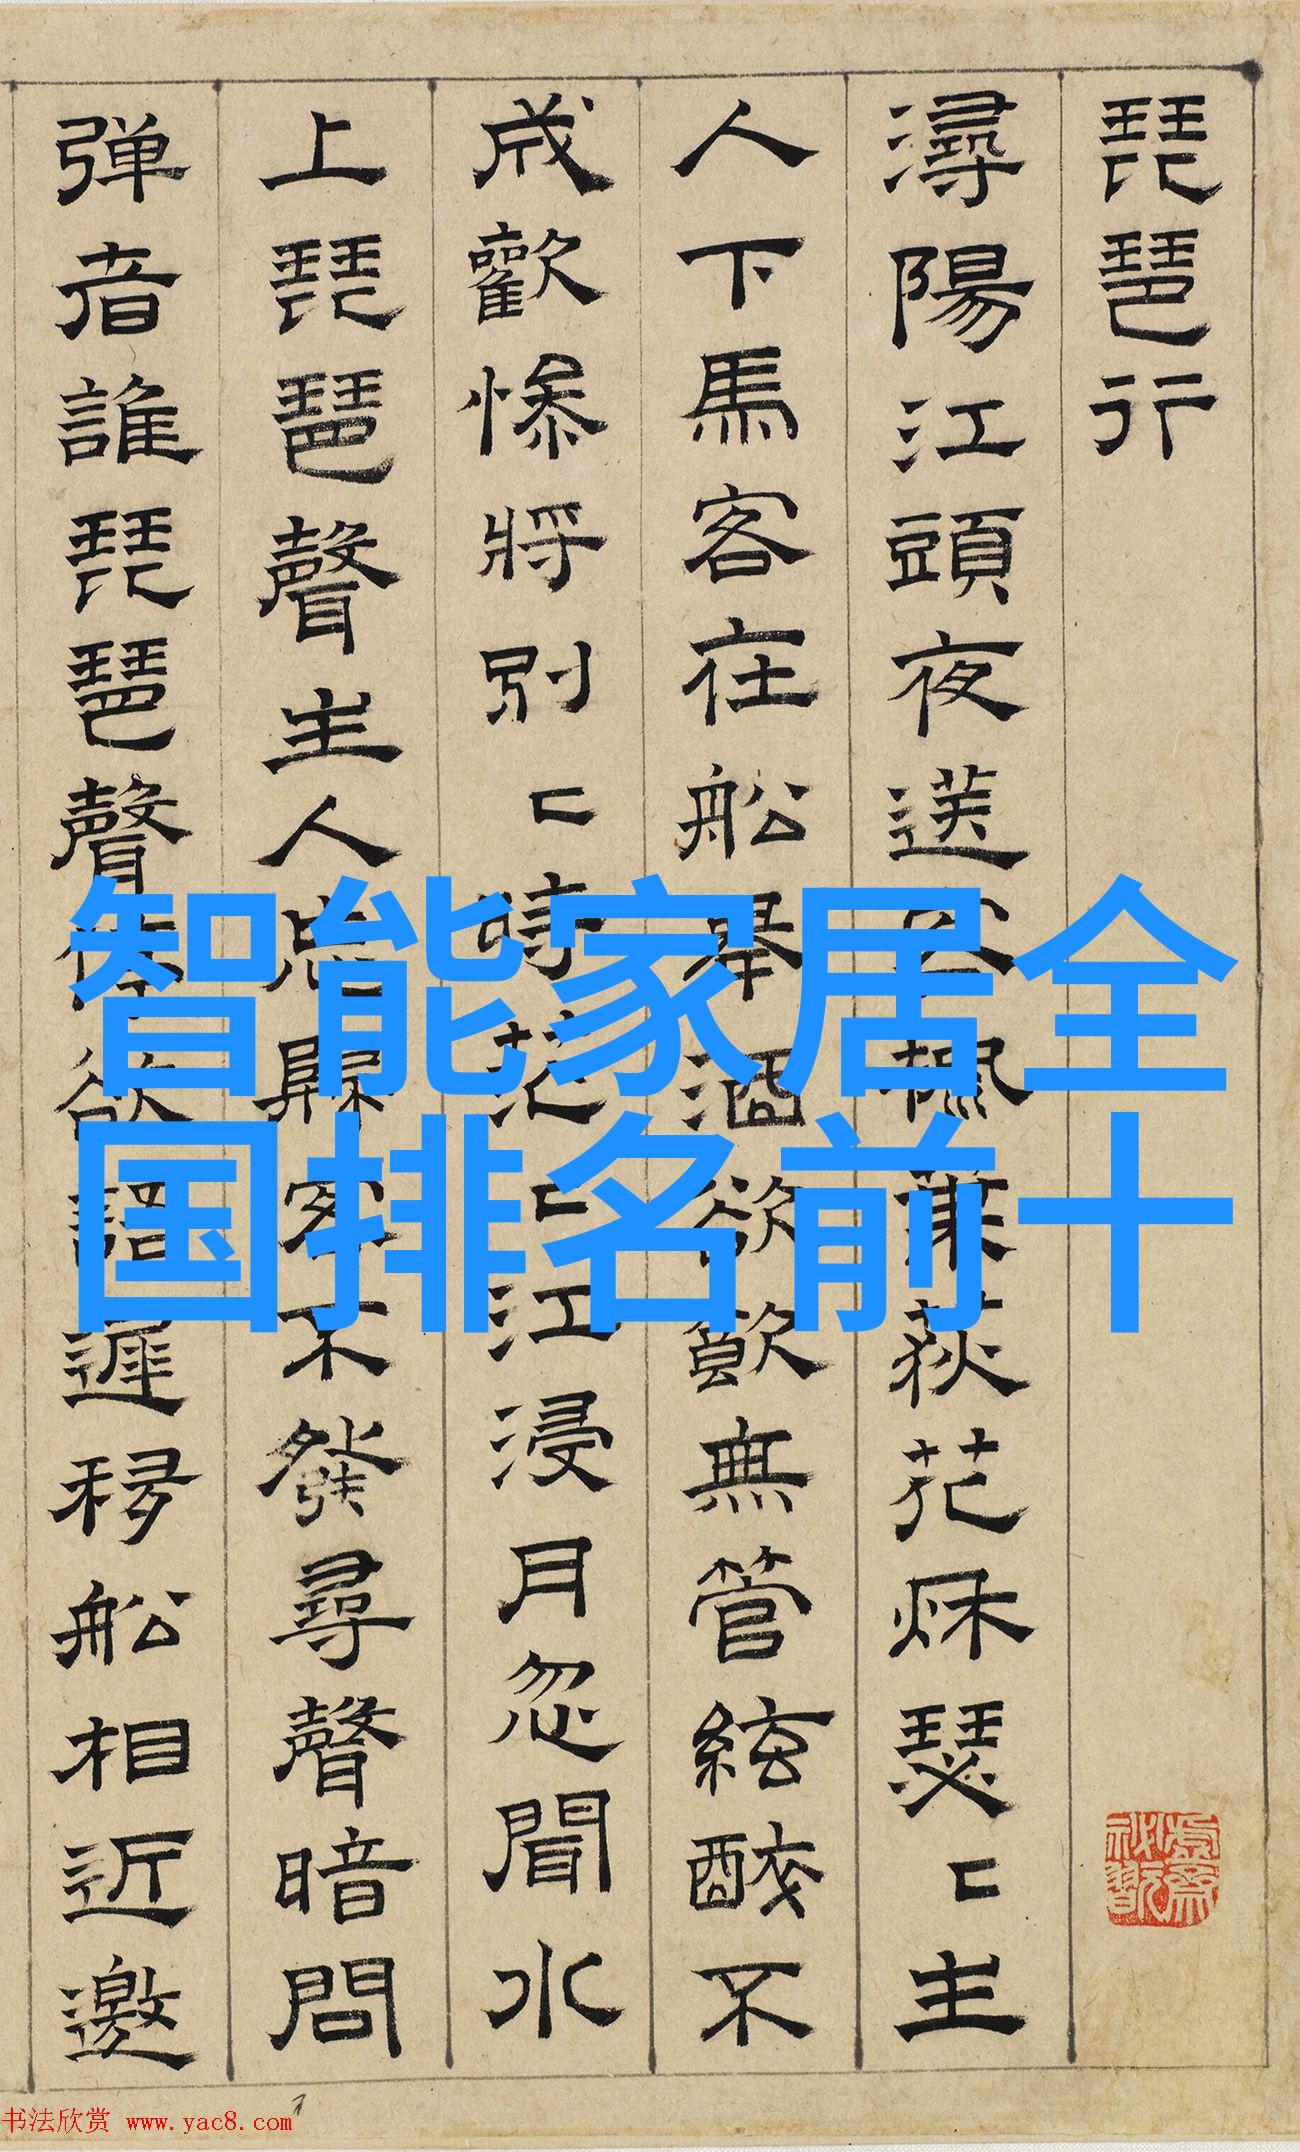 琵琶行
潯陽江頭夜送客楓葉荻花秋瑟〻主
人下馬客在船舉酒欲飲無管絃醉不
成歡慘將別〻時茫〻江浸月忽聞水
上琵琶聲主人忘歸客不發尋聲暗問
弹者誰琵琶聲停欲語遲移船相近邀
智能家居全
国排名前十
书法欣赏 www.yac8.com